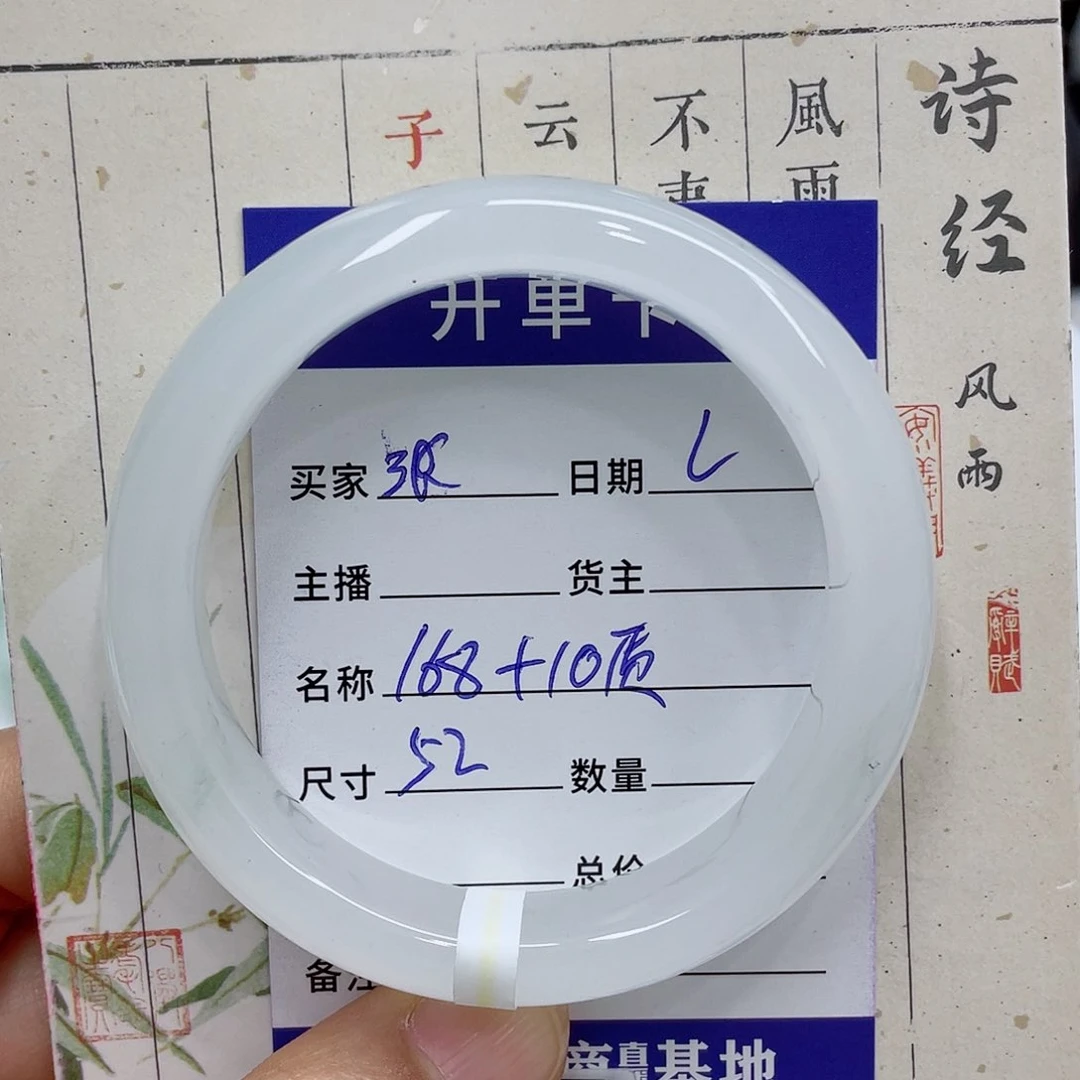 诗经
风雨
風雨
不
云
子
开单卡
买家 张 日期 L
主播 货主
名称 168+10质
尺寸 52 数量
总价
备注
基地